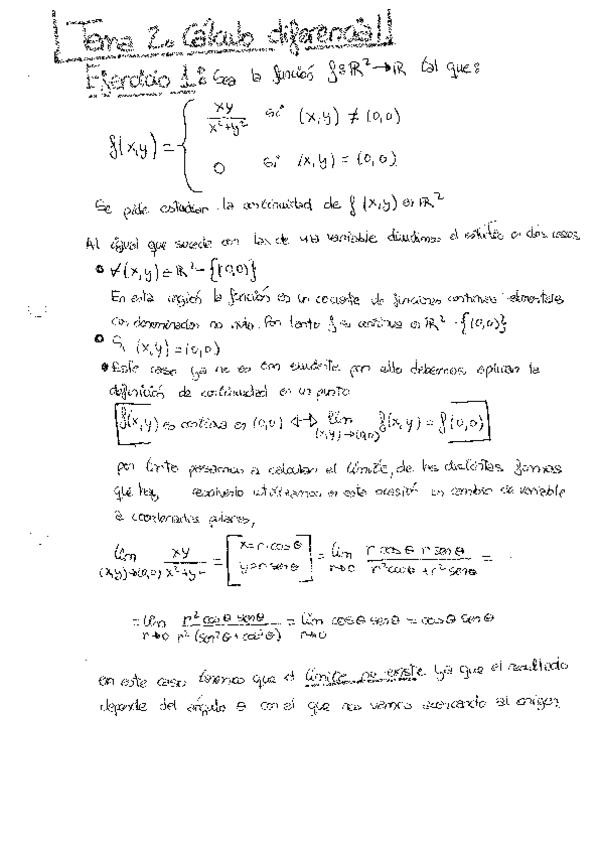 Tema 2. Cálculo diferencial
Ejercicio 1: Sea la función f: ℝ² → ℝ tal que:
f(x,y) = { xy / x²+y² si (x,y) ≠ (0,0)
0 si (x,y) = (0,0)
Se pide estudiar la continuidad de f(x,y) en ℝ²
Al igual que sucede con las de una variable dividimos el estudio en dos casos
• ∀(x,y) ∈ ℝ² - {(0,0)}
En esta región la función es un cociente de funciones continuas elementales
con denominador no nulo. Por tanto f es continua en ℝ² - {(0,0)}
• Si (x,y) = (0,0)
• Este caso ya no es tan evidente por ello debemos aplicar la
definición de continuidad en un punto
f(x,y) es continua en (0,0) ⟺ lim (x,y)→(0,0) f(x,y) = f(0,0)
por tanto pasamos a calcular el límite, de las distintas formas
que hay, resolverlo utilizamos en esta ocasión un cambio de variable
a coordenadas polares,
lim (x,y)→(0,0) xy / x²+y² = [x = r·cosθ y = r senθ] = lim r→0 r cosθ r senθ / r²cosθ + r²senθ =
= lim r→0 r² cosθ senθ / r² (sen²θ + cos²θ) = lim r→0 cosθ senθ = cosθ senθ
en este caso tenemos que el límite no existe ya que el resultado
depende del ángulo θ con el que nos vamos acercando al origen